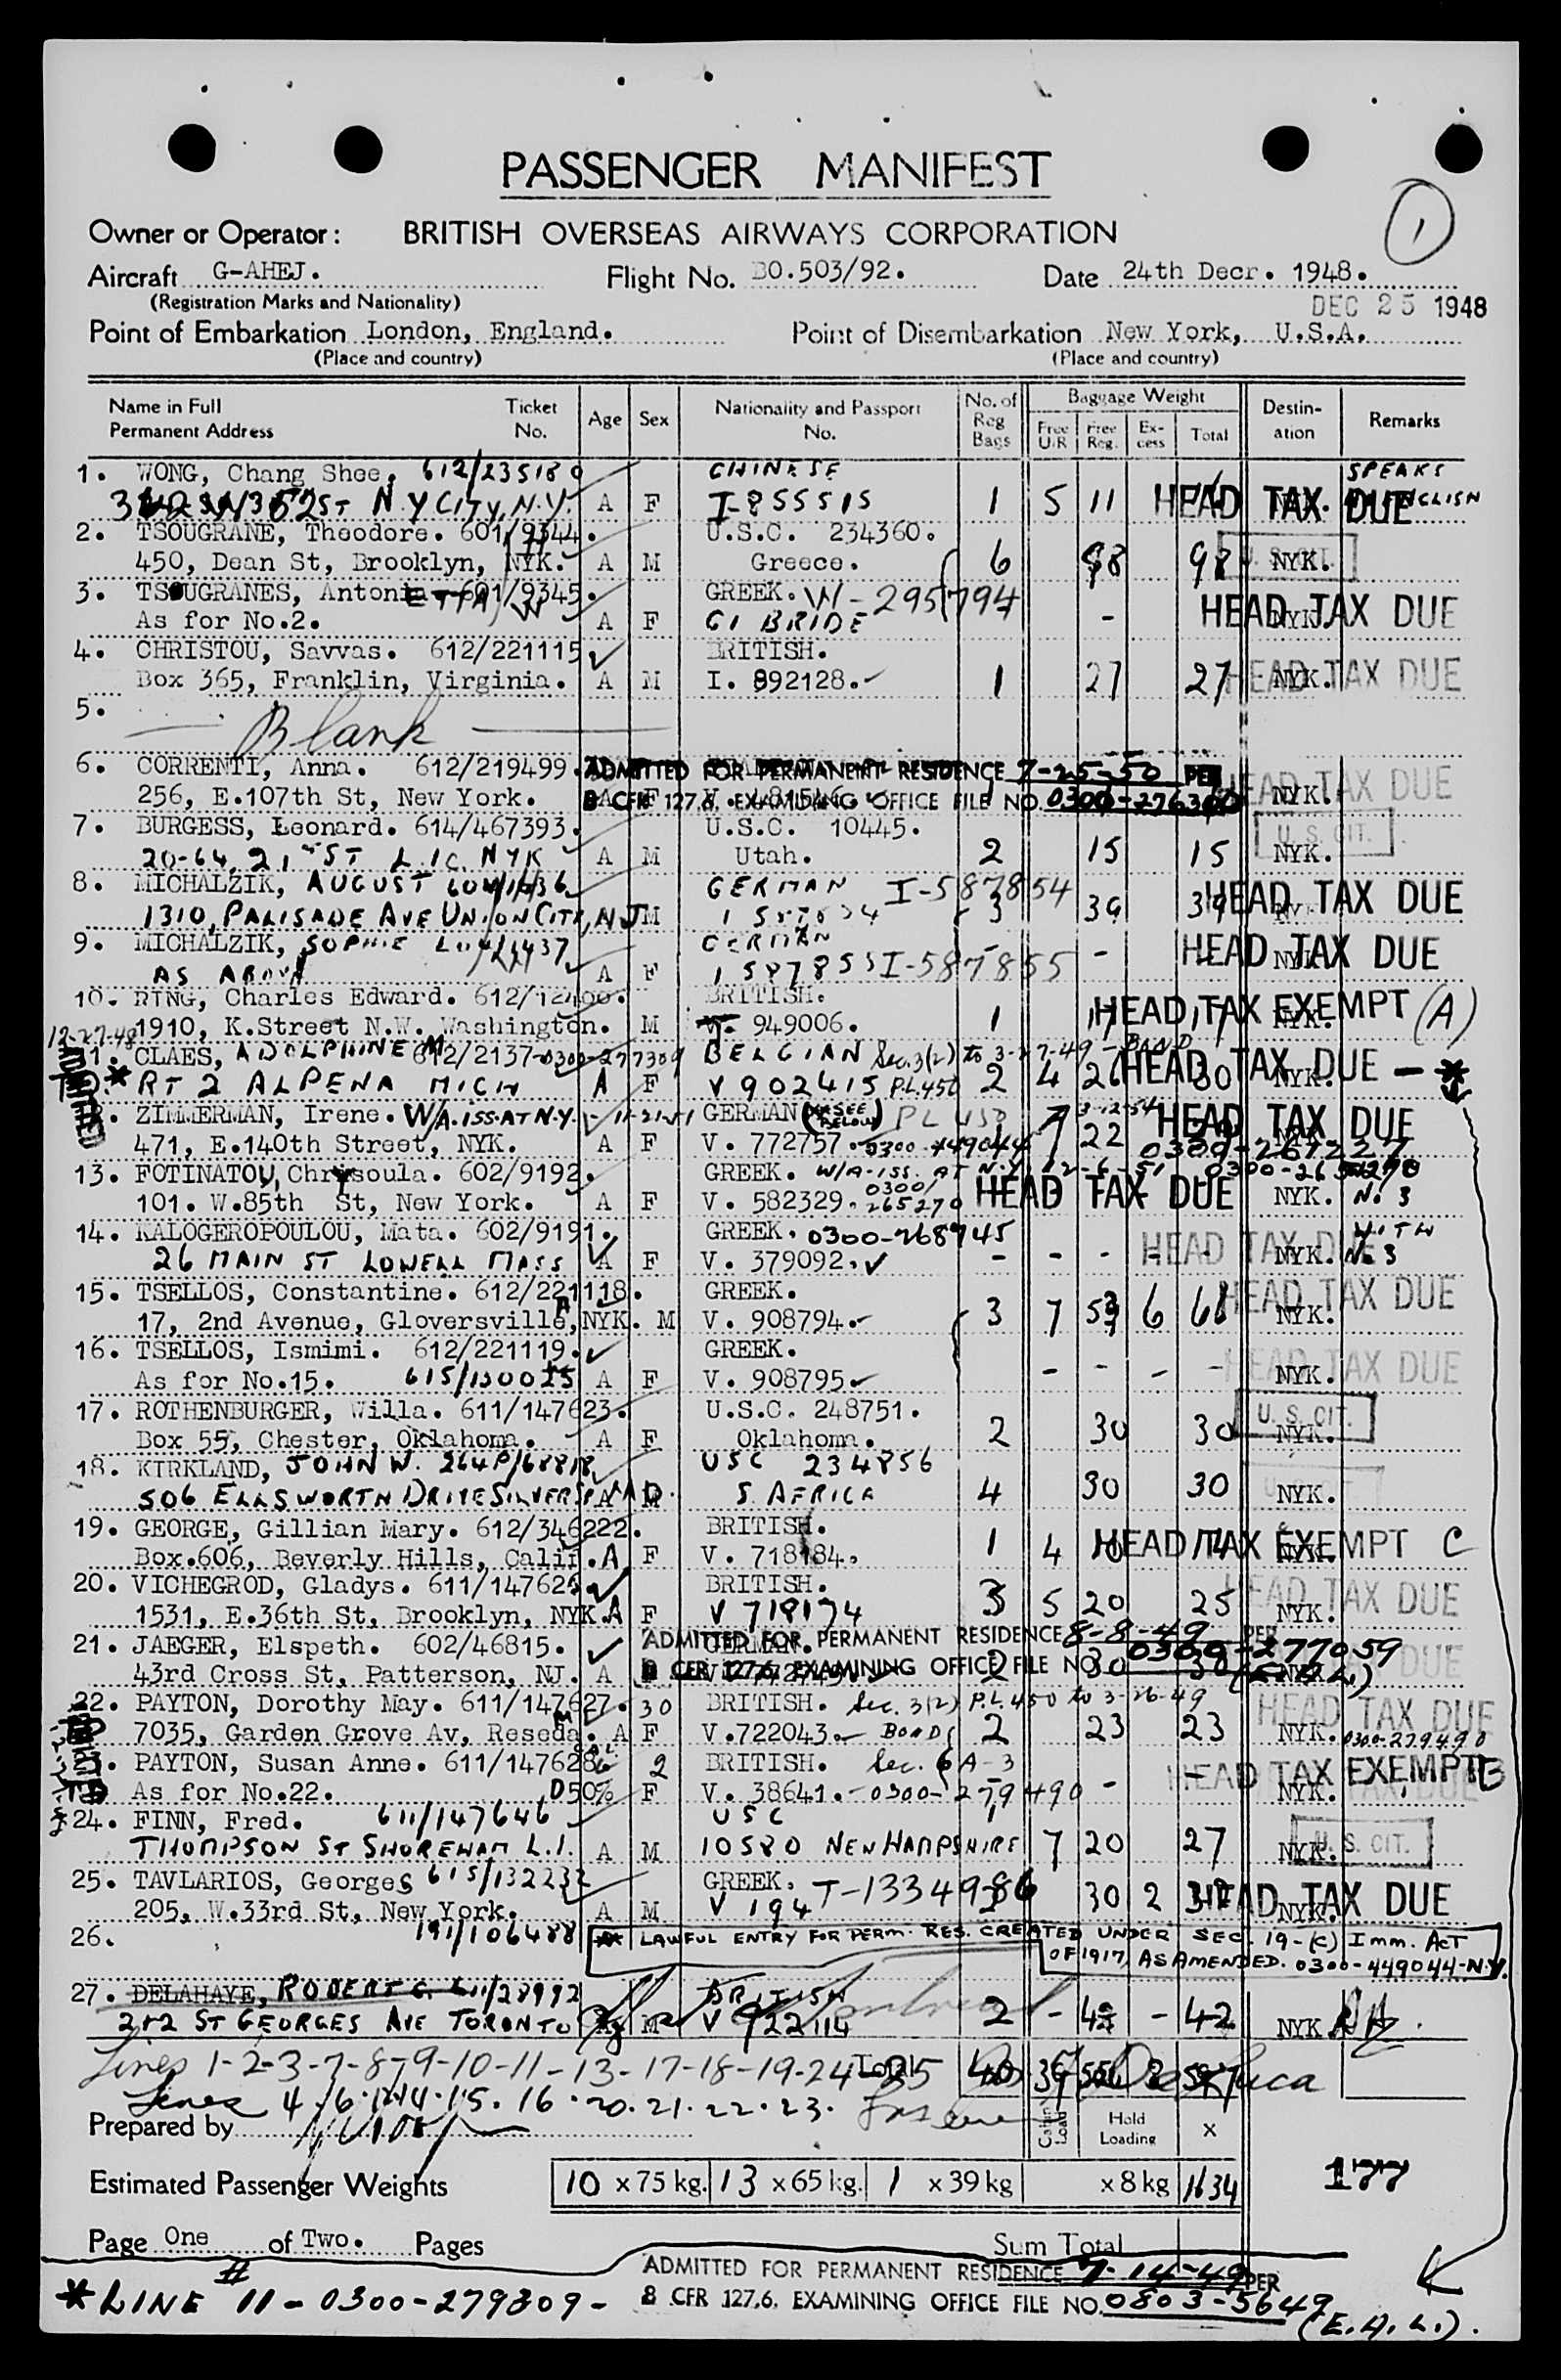 1
PASSENGER MANIFEST
Owner or Operator: BRITISH OVERSEAS AIRWAYS CORPORATION
Aircraft G-AHEJ. Flight No. BO.503/92. Date 24th Decr. 1948.
(Registration Marks and Nationality) DEC 25 1948
Point of Embarkation London, England. Point of Disembarkation New York, U.S.A.
(Place and country) (Place and country)
Name in Full Ticket Age Sex Nationality and Passport No. of Reg Bags Baggage Weight Destin-ation Remarks
Permanent Address No. No. Free U/R Free Reg. Ex-cess Total
1. WONG, Chang Shee, 612/235180 CHINESE SPEAKS
ST N.Y CITY, N.Y. A F I-855515 1 5 11 HEAD TAX DUE ENGLISH
2. TSOUGRANE, Theodore. 601/9344. U.S.C. 234360.
450, Dean St, Brooklyn, NYK. A M Greece. 6 98 98 NYK. U.S. CIT.
3. TSOUGRANES, Antonia 601/9345. GREEK. W-295794
As for No.2. A F GI BRIDE - HEAD TAX DUE NYK.
4. CHRISTOU, Savvas. 612/221115 BRITISH.
Box 365, Franklin, Virginia. A M I. 892128. 1 27 27 NYK. HEAD TAX DUE
5. Blank
6. CORRENTI, Anna. 612/219499. ADMITTED FOR PERMANENT RESIDENCE 7-25-50 PER HEAD TAX DUE
256, E.107th St, New York. A F 8 CFR 127.6. EXAMINING OFFICE FILE NO. 0300-276300 NYK.
7. BURGESS, Leonard. 614/467393. U.S.C. 10445. U.S. CIT.
20-64, 21 ST L.I.C. NYK A M Utah. 2 15 15 NYK.
8. MICHALZIK, AUGUST GERMAN I-587854
1310, PALISADE AVE UNION CITY, NJ M 3 39 39 HEAD TAX DUE
9. MICHALZIK, SOPHIE GERMAN - - HEAD TAX DUE
AS ABOVE A F I 587855 I-587855
10. RING, Charles Edward. BRITISH.
1910, K.Street N.W. Washington. M 949006. 1 HEAD TAX EXEMPT (A) NYK.
12-27-48 ADMITTED
11. CLAES, ADOLPHINE M 612/2137 BELGIAN Sec. 3(2) to 3-27-49 - BOND
* RT 2 ALPENA MICH A F V 902415 P.L. 450 2 4 26 30 HEAD TAX DUE - * NYK.
ZIMMERMAN, Irene. W/A. ISS. AT N.Y. 11-21-51 GERMAN (SEE BELOW) 3-12-54 HEAD TAX DUE
471, E.140th Street, NYK. A F V. 772757. 0300-449044 22
13. FOTINATOU, Chrysoula. 602/9192. GREEK. W/A-ISS. AT N.Y. 12-6-51
101. W.85th St, New York. A F V. 582329. 0300/265270 HEAD TAX DUE NYK. No. 3
14. KALOGEROPOULOU, Mata. 602/9191. GREEK. 0300-268745 WITH
26 MAIN ST LOWELL MASS A F V. 379092. - - - HEAD TAX DUE NYK. No. 3
15. TSELLOS, Constantine. 612/221118. GREEK. HEAD TAX DUE
17, 2nd Avenue, Gloversville, NYK. A M V. 908794. 3 7 6 NYK.
16. TSELLOS, Ismimi. 612/221119. GREEK.
As for No.15. A F V. 908795. - - - - HEAD TAX DUE NYK.
17. ROTHENBURGER, Willa. 611/147623. U.S.C. 248751.
Box 55, Chester, Oklahoma. A F Oklahoma. 2 30 30 U. S. CIT. NYK.
18. KIRKLAND, JOHN W. USC 234856
506 ELLSWORTH DRIVE SILVER SP MD. A M S. AFRICA 4 30 30 NYK.
19. GEORGE, Gillian Mary. 612/346222. BRITISH.
Box.606, Beverly Hills, Calif. A F V. 718184. 1 4 10 14 HEAD TAX EXEMPT C
20. VICHEGROD, Gladys. 611/147626 BRITISH.
1531, E.36th St, Brooklyn, NYK. A F V 718174 3 5 20 25 NYK. HEAD TAX DUE
21. JAEGER, Elspeth. 602/46815. GERMAN. ADMITTED FOR PERMANENT RESIDENCE 8-8-49 PER
43rd Cross St, Patterson, NJ. A 8 CFR 127.6. EXAMINING OFFICE FILE NO. 0300-277059 2 30 30 DUE
22. PAYTON, Dorothy May. 611/147627. 30 BRITISH. Sec. 3(2) P.L. 450 to 3-26-49 HEAD TAX DUE
7035, Garden Grove Av, Reseda. A F V.722043. BOND 2 23 23 NYK. 0300-279490
ADMITTED
PAYTON, Susan Anne. 611/147628 2 BRITISH. Sec. 6 A-3 HEAD TAX EXEMPT
As for No.22. 50% F V. 38641. 0300-279490 - - NYK.
24. FINN, Fred. 611/147646 USC
THOMPSON ST SHOREHAM L.I. A M 10580 NEW HAMPSHIRE 1 7 20 27 NYK. U. S. CIT.
25. TAVLARIOS, Georges 615/132232 GREEK. T-1334986
205, W.33rd St, New York. A M V 194 30 2 32 HEAD TAX DUE NYK.
26. 191/106488 ** LAWFUL ENTRY FOR PERM. RES. CREATED UNDER SEC. 19-(C) IMM. ACT
OF 1917, AS AMENDED. 0300-449044-N.Y.
27. DELAHAYE, ROBERT G. 611/28992 BRITISH
212 ST GEORGES AVE TORONTO A M V 922114 2 - 42 - 42 NYK
Lines 1-2-3-7-8-9-10-11-13-17-18-19-24-25 Total 40
Lines 4. 6. 14. 15. 16. 20. 21. 22. 23.
Prepared by Cabin Load Hold Loading X
Estimated Passenger Weights 10 x 75 kg. 13 x 65 kg. 1 x 39 kg x 8 kg 1634 177
Page One of Two. Pages Sum Total
# ADMITTED FOR PERMANENT RESIDENCE 7-14-49 PER
* LINE 11 - 0300-279309 - 8 CFR 127.6. EXAMINING OFFICE FILE NO. 0803-5649
(E.A.L.).